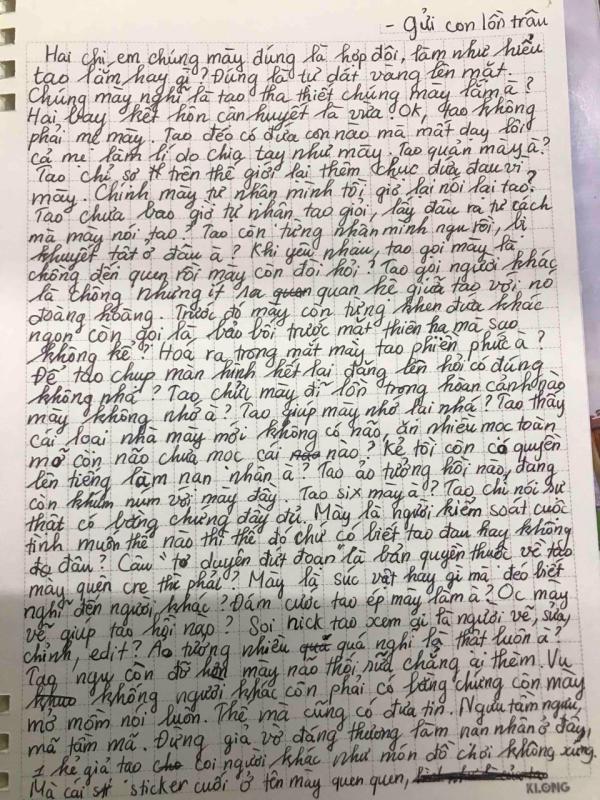 - gửi con lồn trâu
Hai chị em chúng mày đúng là hợp đôi, làm như hiểu
tao lắm hay gì? Đúng là tự dát vàng lên mặt.
Chúng mày nghĩ là tao tha thiết chúng mày lắm à?
Hai bay kết hôn cận huyết là vừa? Ok, tao không
phải mẹ mày. Tao đéo có đứa con nào mà mất dạy lôi
cả mẹ làm lí do chia tay như mày. Tao quản mày à?
Tao chỉ sợ tr trên thế giới lại thêm chục đứa đau vì
mày. Chính mày tự nhận mình tồi, giờ lại nói lại tao?
Tao chưa bao giờ tự nhận tao giỏi, lấy đâu ra tư cách
mà mày nói tao? Tao còn từng nhận mình ngu rồi, bị
khuyết tật ở đâu à? Khi yêu nhau, tao gọi mày là
chồng đến quen rồi mày còn đòi hỏi? Tao gọi người khác
là chồng nhưng ít ra quan hệ giữa tao với nó
đoàng hoàng. Trước đó mày còn từng khen đứa khác
ngon còn gọi là bảo bối trước mặt thiên hạ mà sao
không kể? Hoá ra trong mắt mày tao phiền phức à?
Để tao chụp màn hình hết lại đăng lên hỏi có đúng
không nha? Tao chửi mày đĩ lồn trong hoàn cảnh nào
mày không nhớ à? Tao giúp mày nhớ lại nhá? Tao thấy
cái loại nhà mày mới không có não, ăn nhiều mọc toàn
mỡ còn não chưa mọc cái nào? Kẻ tồi còn có quyền
lên tiếng làm nạn nhân à? Tao ảo tưởng hồi nào, đang
còn khúm núm với mày đây. Tao six mày à? Tao chỉ nói sự
thật có bằng chứng đầy đủ. Mày là người kiểm soát cuộc
tình muốn thế nào thì thế đó chứ có biết tao đau hay không
đâu? Câu "tơ duyên đứt đoạn" là bản quyền thuộc về tao
mày quên cre thì phải? Mày là súc vật hay gì mà đéo biết
nghĩ đến người khác? Đám cưới tao ép mày làm à? Óc mày
vẽ giúp tao hồi nào? Soi nick tao xem gì là người vẽ, sửa,
chỉnh, edit? Ảo tưởng nhiều quá nghĩ là thật luôn à?
Tao ngu còn đỡ hơn mày não thối rữa chẳng ai thèm. Vu
khống người khác còn phải có bằng chứng còn mày
mở mồm nói luôn. Thế mà cũng có đứa tin. Ngưu tầm ngưu,
mã tầm mã. Đừng giả vờ đáng thương làm nạn nhân ở đây,
1 kẻ giả tạo coi người khác như món đồ chơi không xứng.
Mà cái sti sticker cuối ở tên mày quen quen,
KLONG